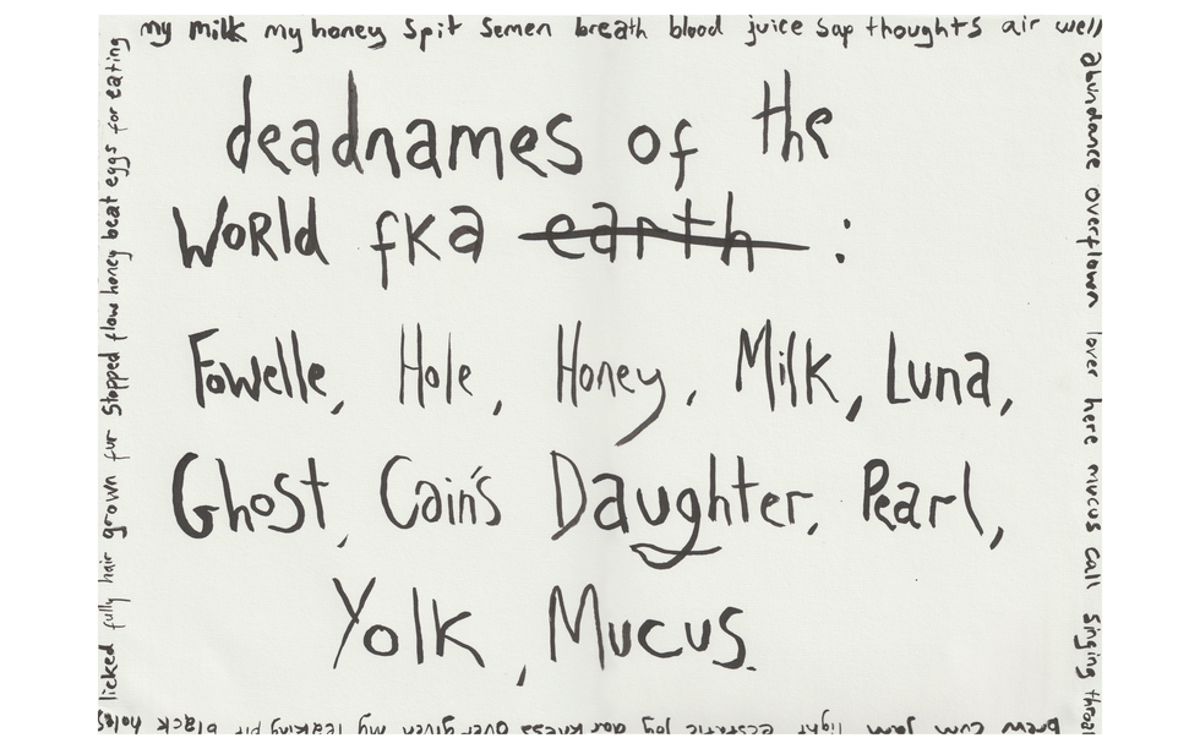 my milk my honey Spit Semen breath blood juice sap thoughts air well
abundance overflown lover here mucus call singing throat
deadnames of the
WoRld fka earth :
Fowelle, Hole, Honey, Milk, Luna,
Ghost, Cain's Daughter, Pearl,
Yolk, Mucus.
cum light ecstatic joy darkness over given my leaking pit black holes
licked fully hair grown fur stopped flow honey beat eggs for eating